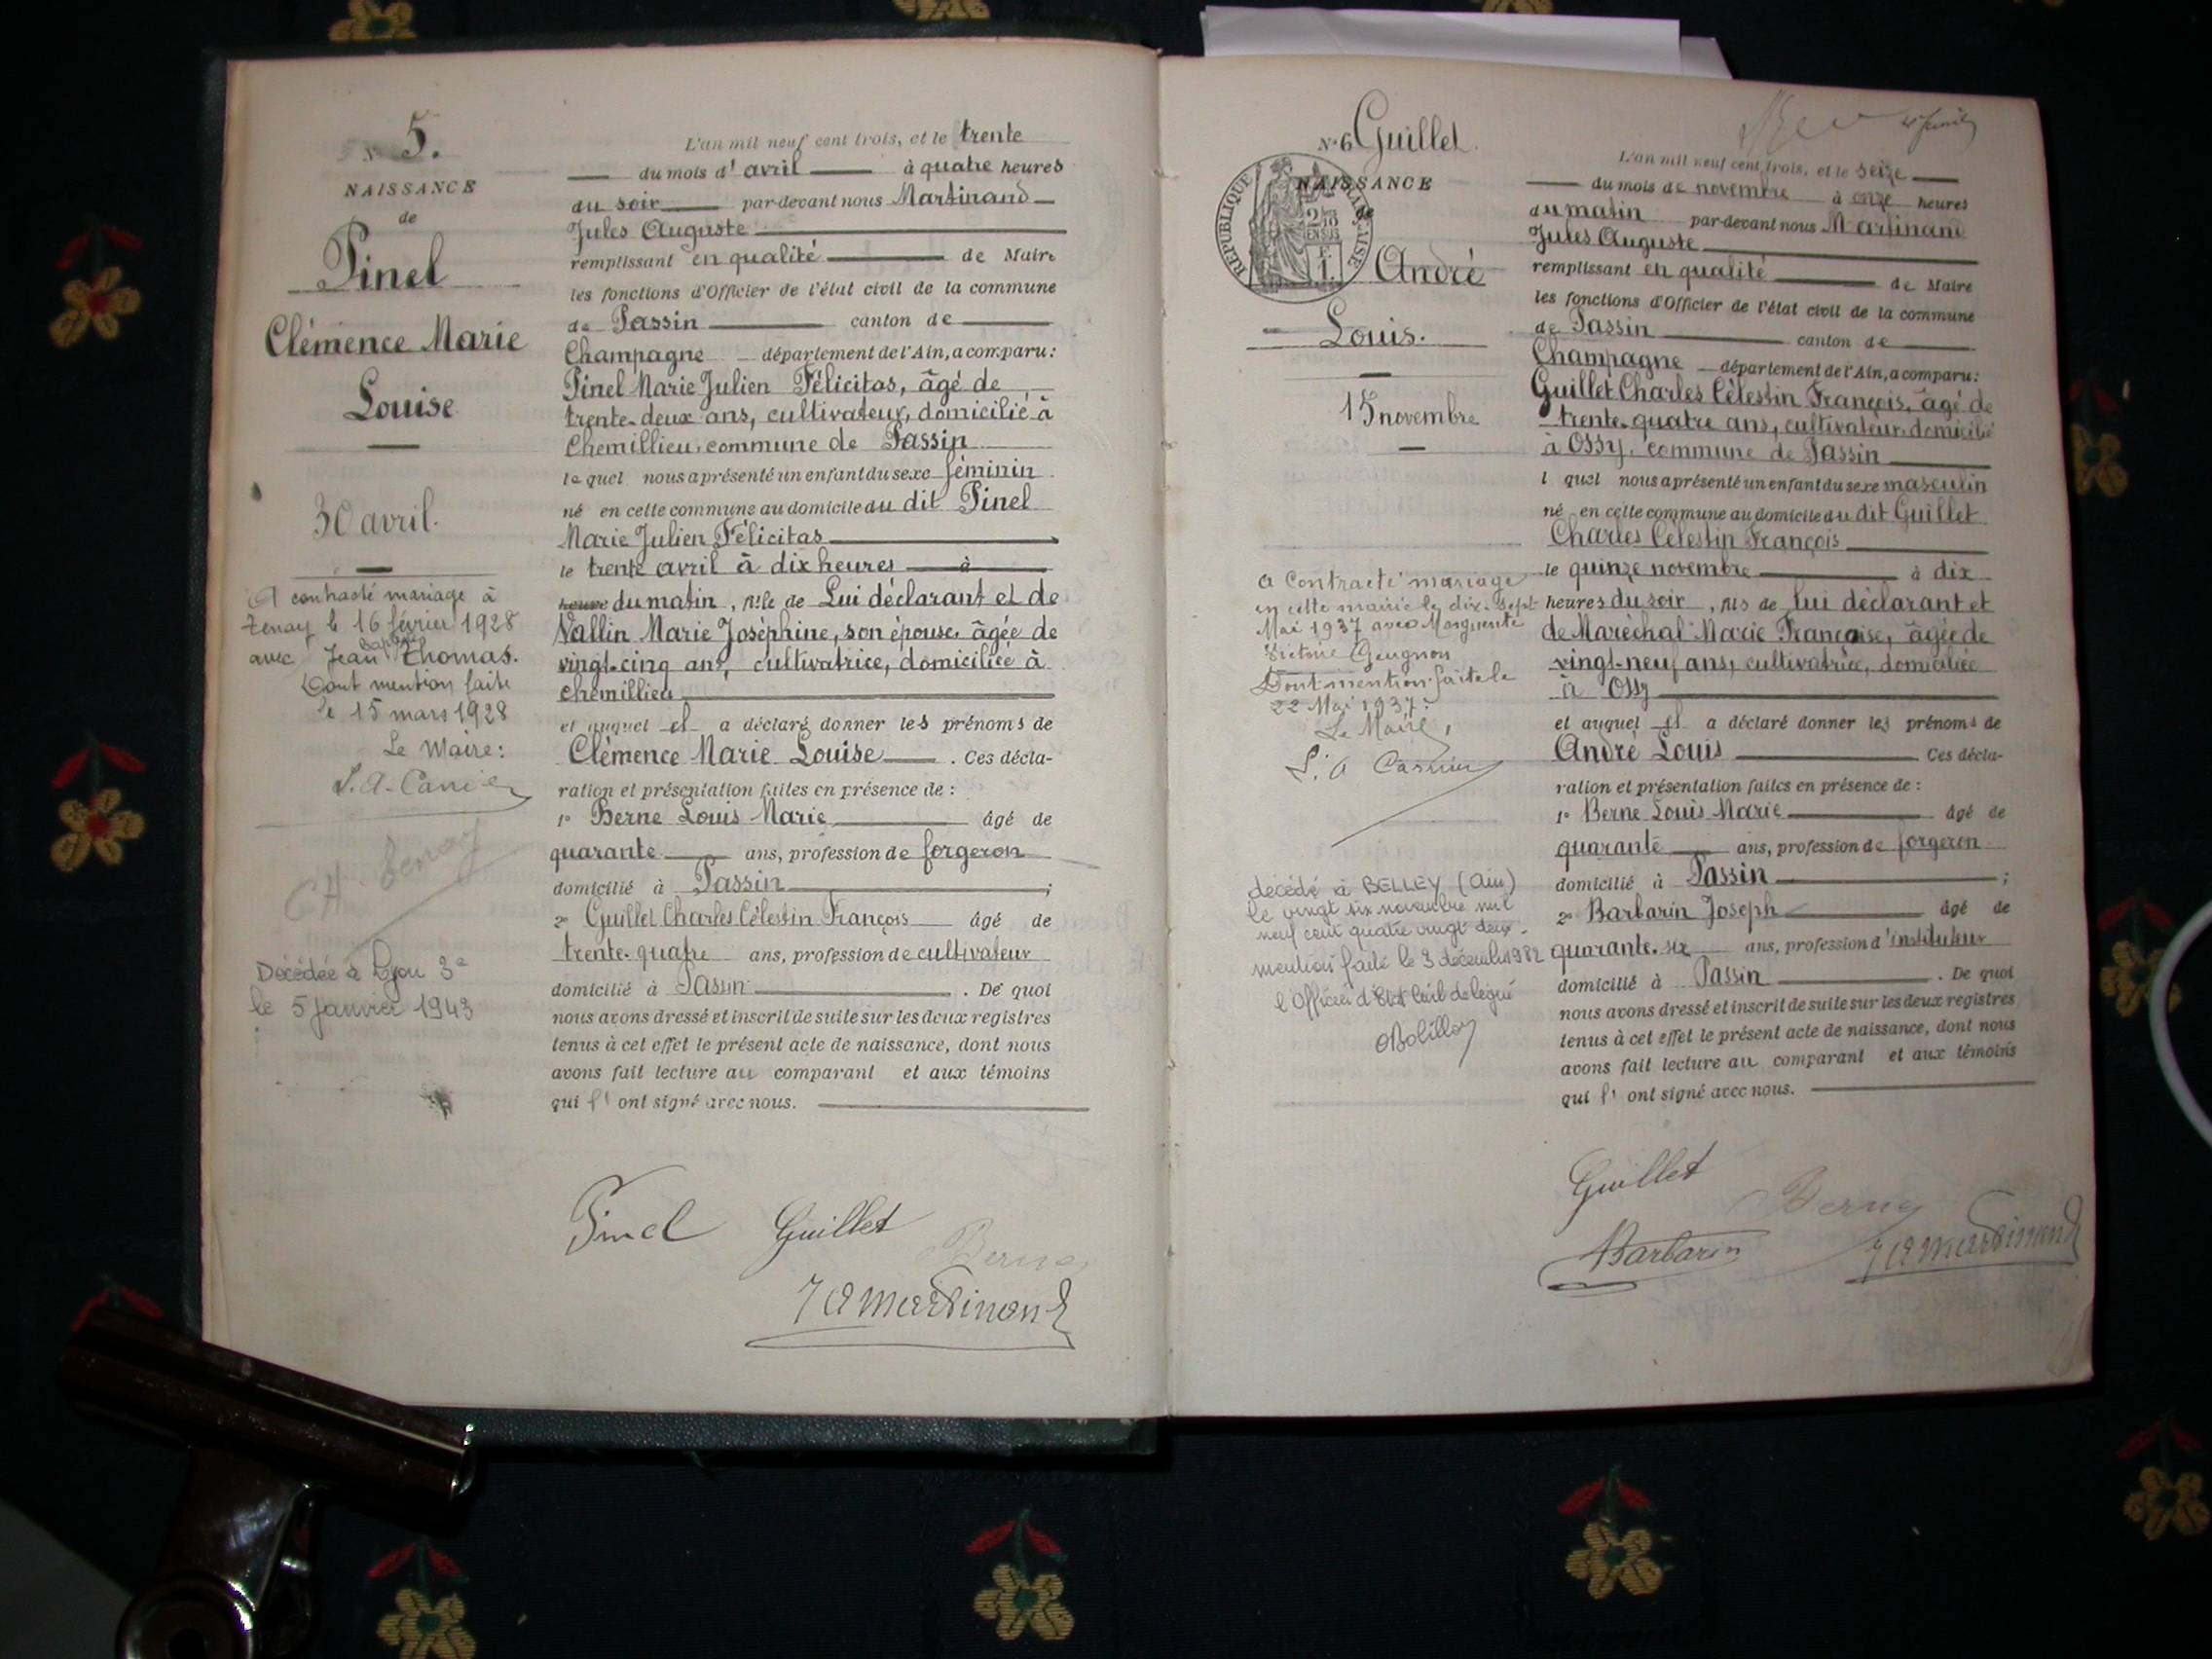 N° 5.
NAISSANCE
de
Pinel
Clémence Marie
Louise
30 avril.
A contracté mariage à
Tenay le 16 février 1928
avec Jean Baptiste Thomas.
Dont mention faite
le 15 mars 1928
Le Maire:
Décédée à Lyon 3e
le 5 Janvier 1943
L'an mil neuf cent trois, et le trente
du mois d'avril à quatre heures
du soir par-devant nous Martinand
Jules Auguste
remplissant en qualité de Maire
les fonctions d'Officier de l'état civil de la commune
de Passin canton de
Champagne département de l'Ain, a comparu:
Pinel Marie Julien Félicitas, âgé de
trente-deux ans, cultivateur, domicilié à
Chemillieu, commune de Passin
lequel nous a présenté un enfant du sexe féminin
né en cette commune au domicile du dit Pinel
Marie Julien Félicitas
le trente avril à dix heures à
heures du matin, fille de Lui déclarant et de
Vallin Marie Joséphine, son épouse, âgée de
vingt-cinq ans, cultivatrice, domiciliée à
chemillieu
et auquel il a déclaré donner les prénoms de
Clémence Marie Louise. Ces décla-
ration et présentation faites en présence de :
1° Berne Louis Marie âgé de
quarante ans, profession de forgeron
domicilié à Passin ;
2° Guillet Charles Célestin François âgé de
trente-quatre ans, profession de cultivateur
domicilié à Passin. De quoi
nous avons dressé et inscrit de suite sur les deux registres
tenus à cet effet le présent acte de naissance, dont nous
avons fait lecture au comparant et aux témoins
qui l' ont signé avec nous.
Pinel Guillet Berne
J A Martinand
N° 6 Guillet
NAISSANCE
de
REPUBLIQUE FRANÇAISE
2/10 EN SUS
F 1.
André
Louis.
15 novembre
a contracté mariage
en cette mairie le dix-sept
Mai 1937 avec Marguerite
Dont mention faite le
22 Mai 1937.
Le Maire,
décédé à BELLEY (Ain)
le vingt six novembre mil
neuf cent quatre vingt deux.
mention faite le 3 décembre 1982
l'Officier d'Etat Civil délégué
L'an mil neuf cent trois, et le seize
du mois de novembre à onze heures
du matin par-devant nous Martinand
Jules Auguste
remplissant en qualité de Maire
les fonctions d'Officier de l'état civil de la commune
de Passin canton de
Champagne département de l'Ain, a comparu:
Guillet Charles Célestin François, âgé de
trente-quatre ans, cultivateur, domicilié
à Ossy, commune de Passin
l quel nous a présenté un enfant du sexe masculin
né en cette commune au domicile du dit Guillet
Charles Célestin François
le quinze novembre à dix
heures du soir, fils de lui déclarant et
de Maréchal Marie Françoise, âgée de
vingt-neuf ans, cultivatrice, domiciliée
à Ossy
et auquel il a déclaré donner les prénoms de
André Louis. Ces décla-
ration et présentation faites en présence de :
1° Berne Louis Marie âgé de
quarante ans, profession de forgeron
domicilié à Passin ;
2° Barbarin Joseph âgé de
quarante-six ans, profession d'instituteur
domicilié à Passin. De quoi
nous avons dressé et inscrit de suite sur les deux registres
tenus à cet effet le présent acte de naissance, dont nous
avons fait lecture au comparant et aux témoins
qui l' ont signé avec nous.
Guillet Berne
Barbarin J A Martinand